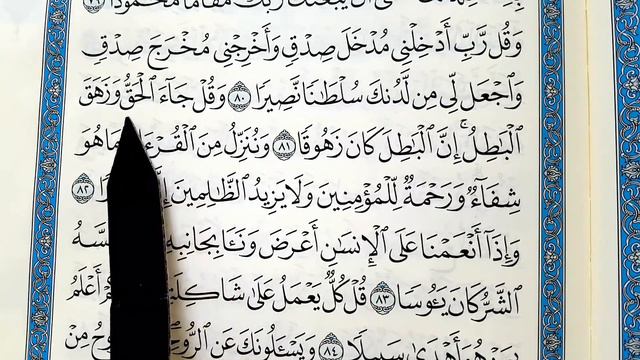 رَبُّكَ مَقَامًا مَّحْمُودًا ٧٩
وَقُل رَّبِّ أَدْخِلْنِى مُدْخَلَ صِدْقٍ وَأَخْرِجْنِى مُخْرَجَ صِدْقٍ
وَٱجْعَل لِّى مِن لَّدُنكَ سُلْطَٰنًا نَّصِيرًا ٨٠ وَقُلْ جَآءَ ٱلْحَقُّ وَزَهَقَ
ٱلْبَٰطِلُ ۚ إِنَّ ٱلْبَٰطِلَ كَانَ زَهُوقًا ٨١ وَنُنَزِّلُ مِنَ مَا هُوَ
شِفَآءٌ وَرَحْمَةٌ لِّلْمُؤْمِنِينَ وَلَا يَزِيدُ ٱلظَّٰلِمِينَ ٨٢
وَإِذَآ أَنْعَمْنَا عَلَى ٱلْإِنسَٰنِ أَعْرَضَ وَنَـَٔا بِجَانِبِهِۦ
ٱلشَّرُّ كَانَ يَـُٔوسًا ٨٣ قُلْ كُلٌّ يَعْمَلُ عَلَىٰ أَعْلَمُ
سَبِيلًا ٨٤ وَيَسْـَٔلُونَكَ عَنِ ٱلرُّوحِ مِنْ